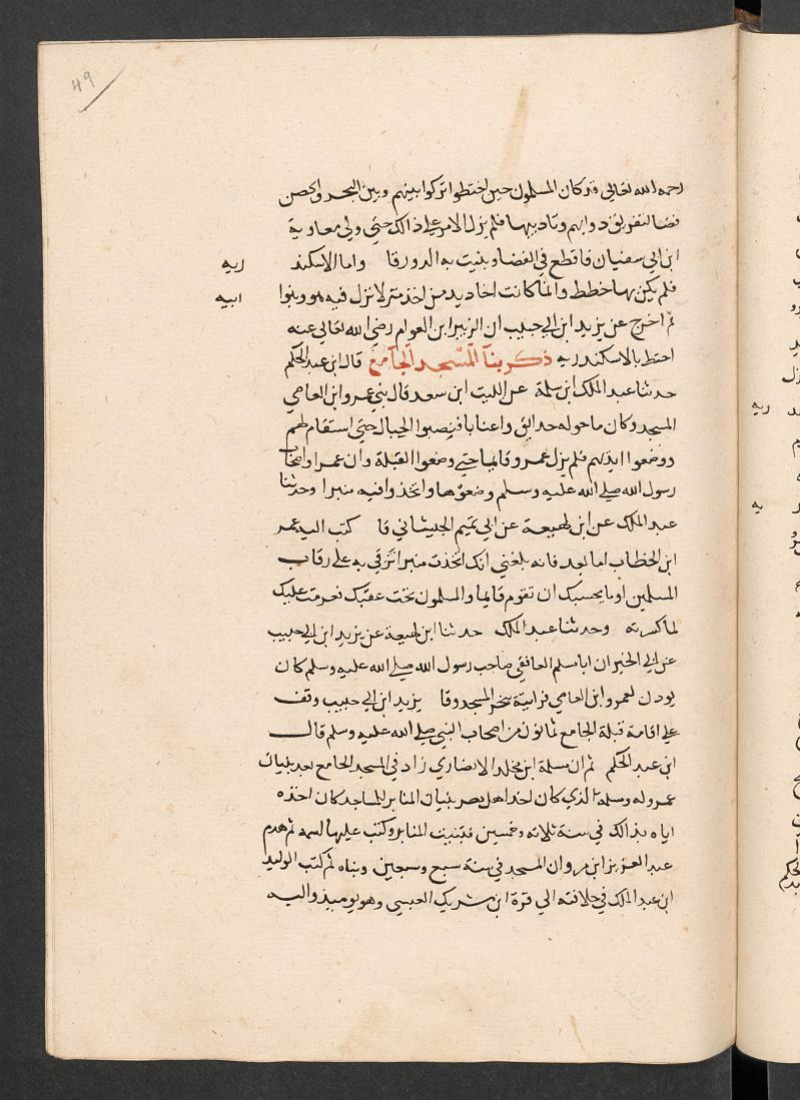 49
رحمه الله تعالى وقد كان المسلمون حين اختطوا تركوا بينهم وبين البحر والحصن
فضا لتفريق دوابهم وتاديبها فلم يزل الامر على ذالك حتى ولي معاوية
ابن ابي سفيان فاقطع في الفضا وبنيت به الدور قا واما الاسكند ريه
فلم يكن بها خطط وانما كانت اخاديد من اخذ منزلا نزل فيه هو وبنوا ابيه
ثم اخرج عن يزيد ابن ابي حبيب ان الزبير ابن العوام رضي الله تعالى عنه
اختط بالاسكندريه ذكر بنآ المسجد الجآمع قال ابن عبد الحكم
حدثنا عبد الملك ابن سلمة عن الليث ابن سعد قال بني عمرو ابن العاصي
المسجد وكان ما حوله حدائق واعنابا فنصبوا الحبال حتى استقام لهم
ووضعوا ايديهم فلم يزل عمرو قايما حتى وضعوا القبلة وان عمرا واصحاب
رسول الله صلى الله عليه وسلم وضعوها واتخذوا فيه منبرا وحدثنا
عبد الملك عن ابن لهيعة عن ابي تميم الجيشاني قا كتب اليه عمر
ابن الخطاب اما بعد فانه بلغني انك اتخذت منبرا ترقي به على رقاب
المسلمين اوما يحسبك ان تقوم قايما والمسلمون تحت عقبك فعزمت عليك
لما كسرته وحدثنا عبد الملك حدثنا ابن لهيعة عن يزيد ابن ابي حبيب
عن ابي الخير ان ابا مسلم الغافقي صاحب رسول الله صلى الله عليه وسلم كان
يوذن لعمرو ابن العاصي فرايته يبخر المسجد وقا يزيد ابن ابي حبيب وقف
على اقامة قبلة الجامع ثمانون من اصحاب النبي صلى الله عليه وسلم قال
ابن عبد الحكم ثم ان مسلمة ابن مخلد الانصاري زاد في المسجد الجامع بعد بنيان
عمرو له ومسلمة الذي كان اخذ اهل مصر بنيان المنابر للمساجد كان اخذه
اياه بذالك في سنة ثلاثه وخمسين فبنيت المنابر وكتب عليها اسمه ثم هدم
عبد العزيز ابن مروان المسجد في سنة سبع وسبعين وبناه ثم كتب الوليد
ابن عبد الملك في خلافته الى قرة ابن شريك العبسي وهو يوميذ واليه